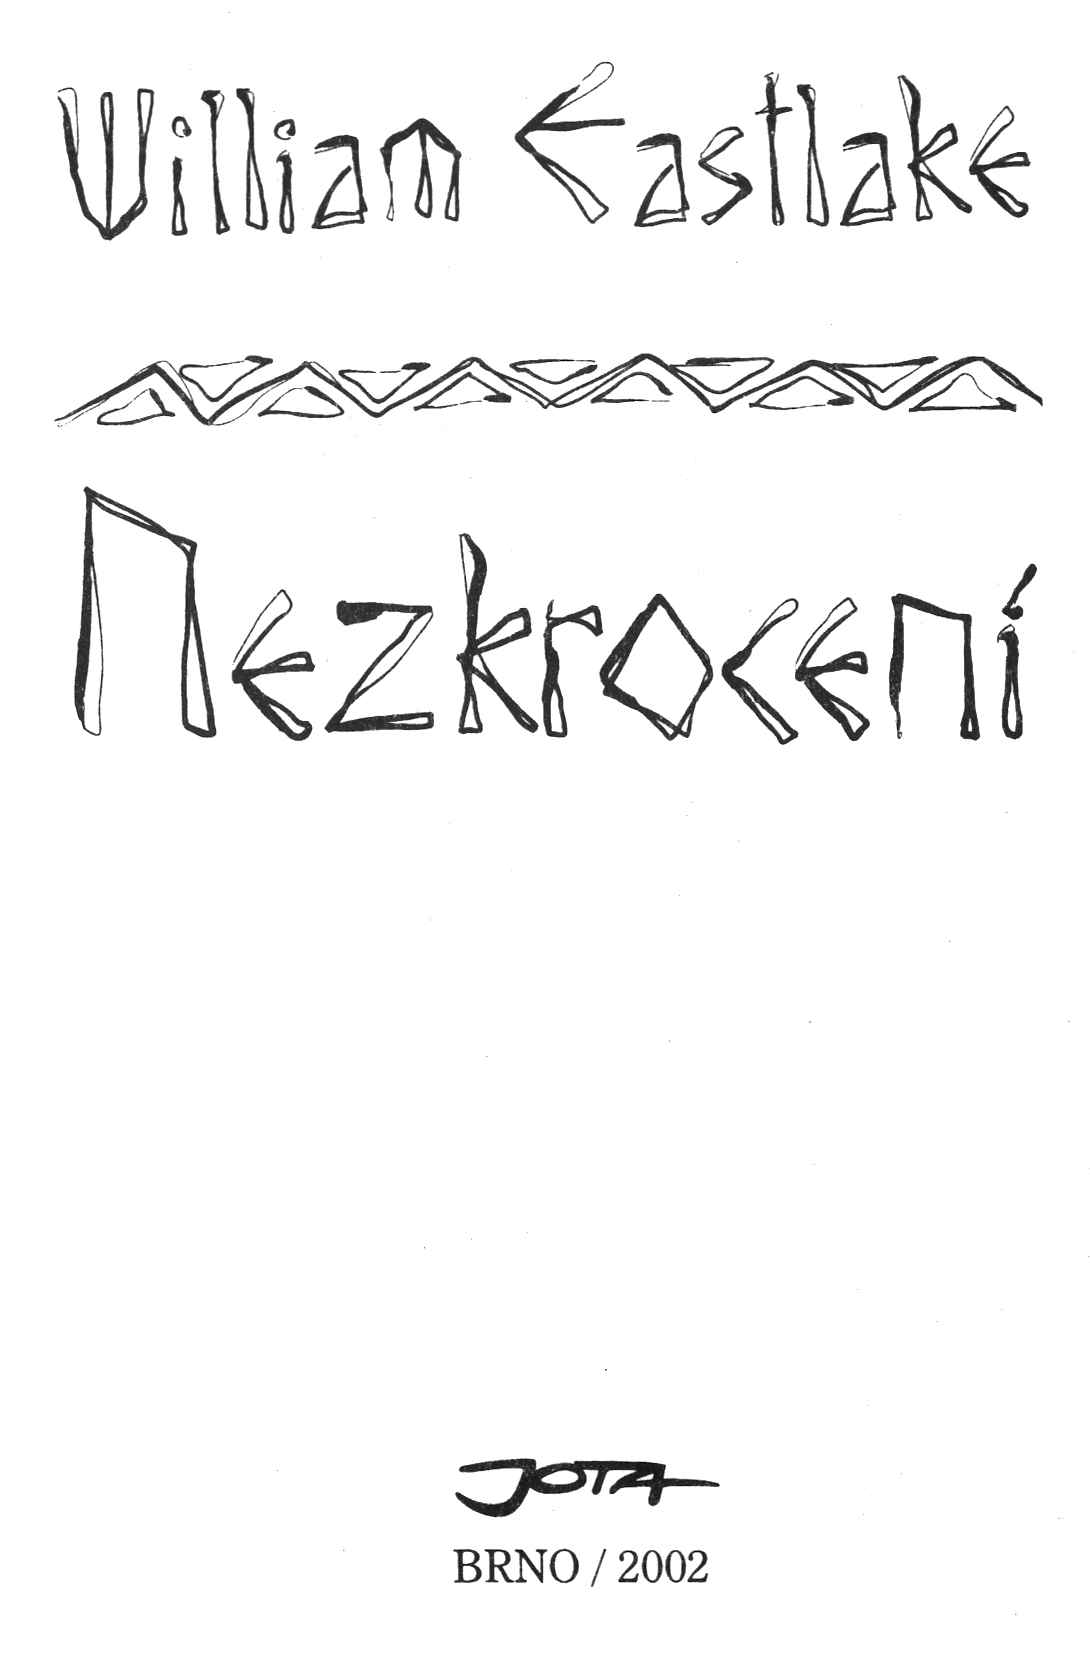 William Eastlake
Nezkrocení
JOTA
BRNO / 2002